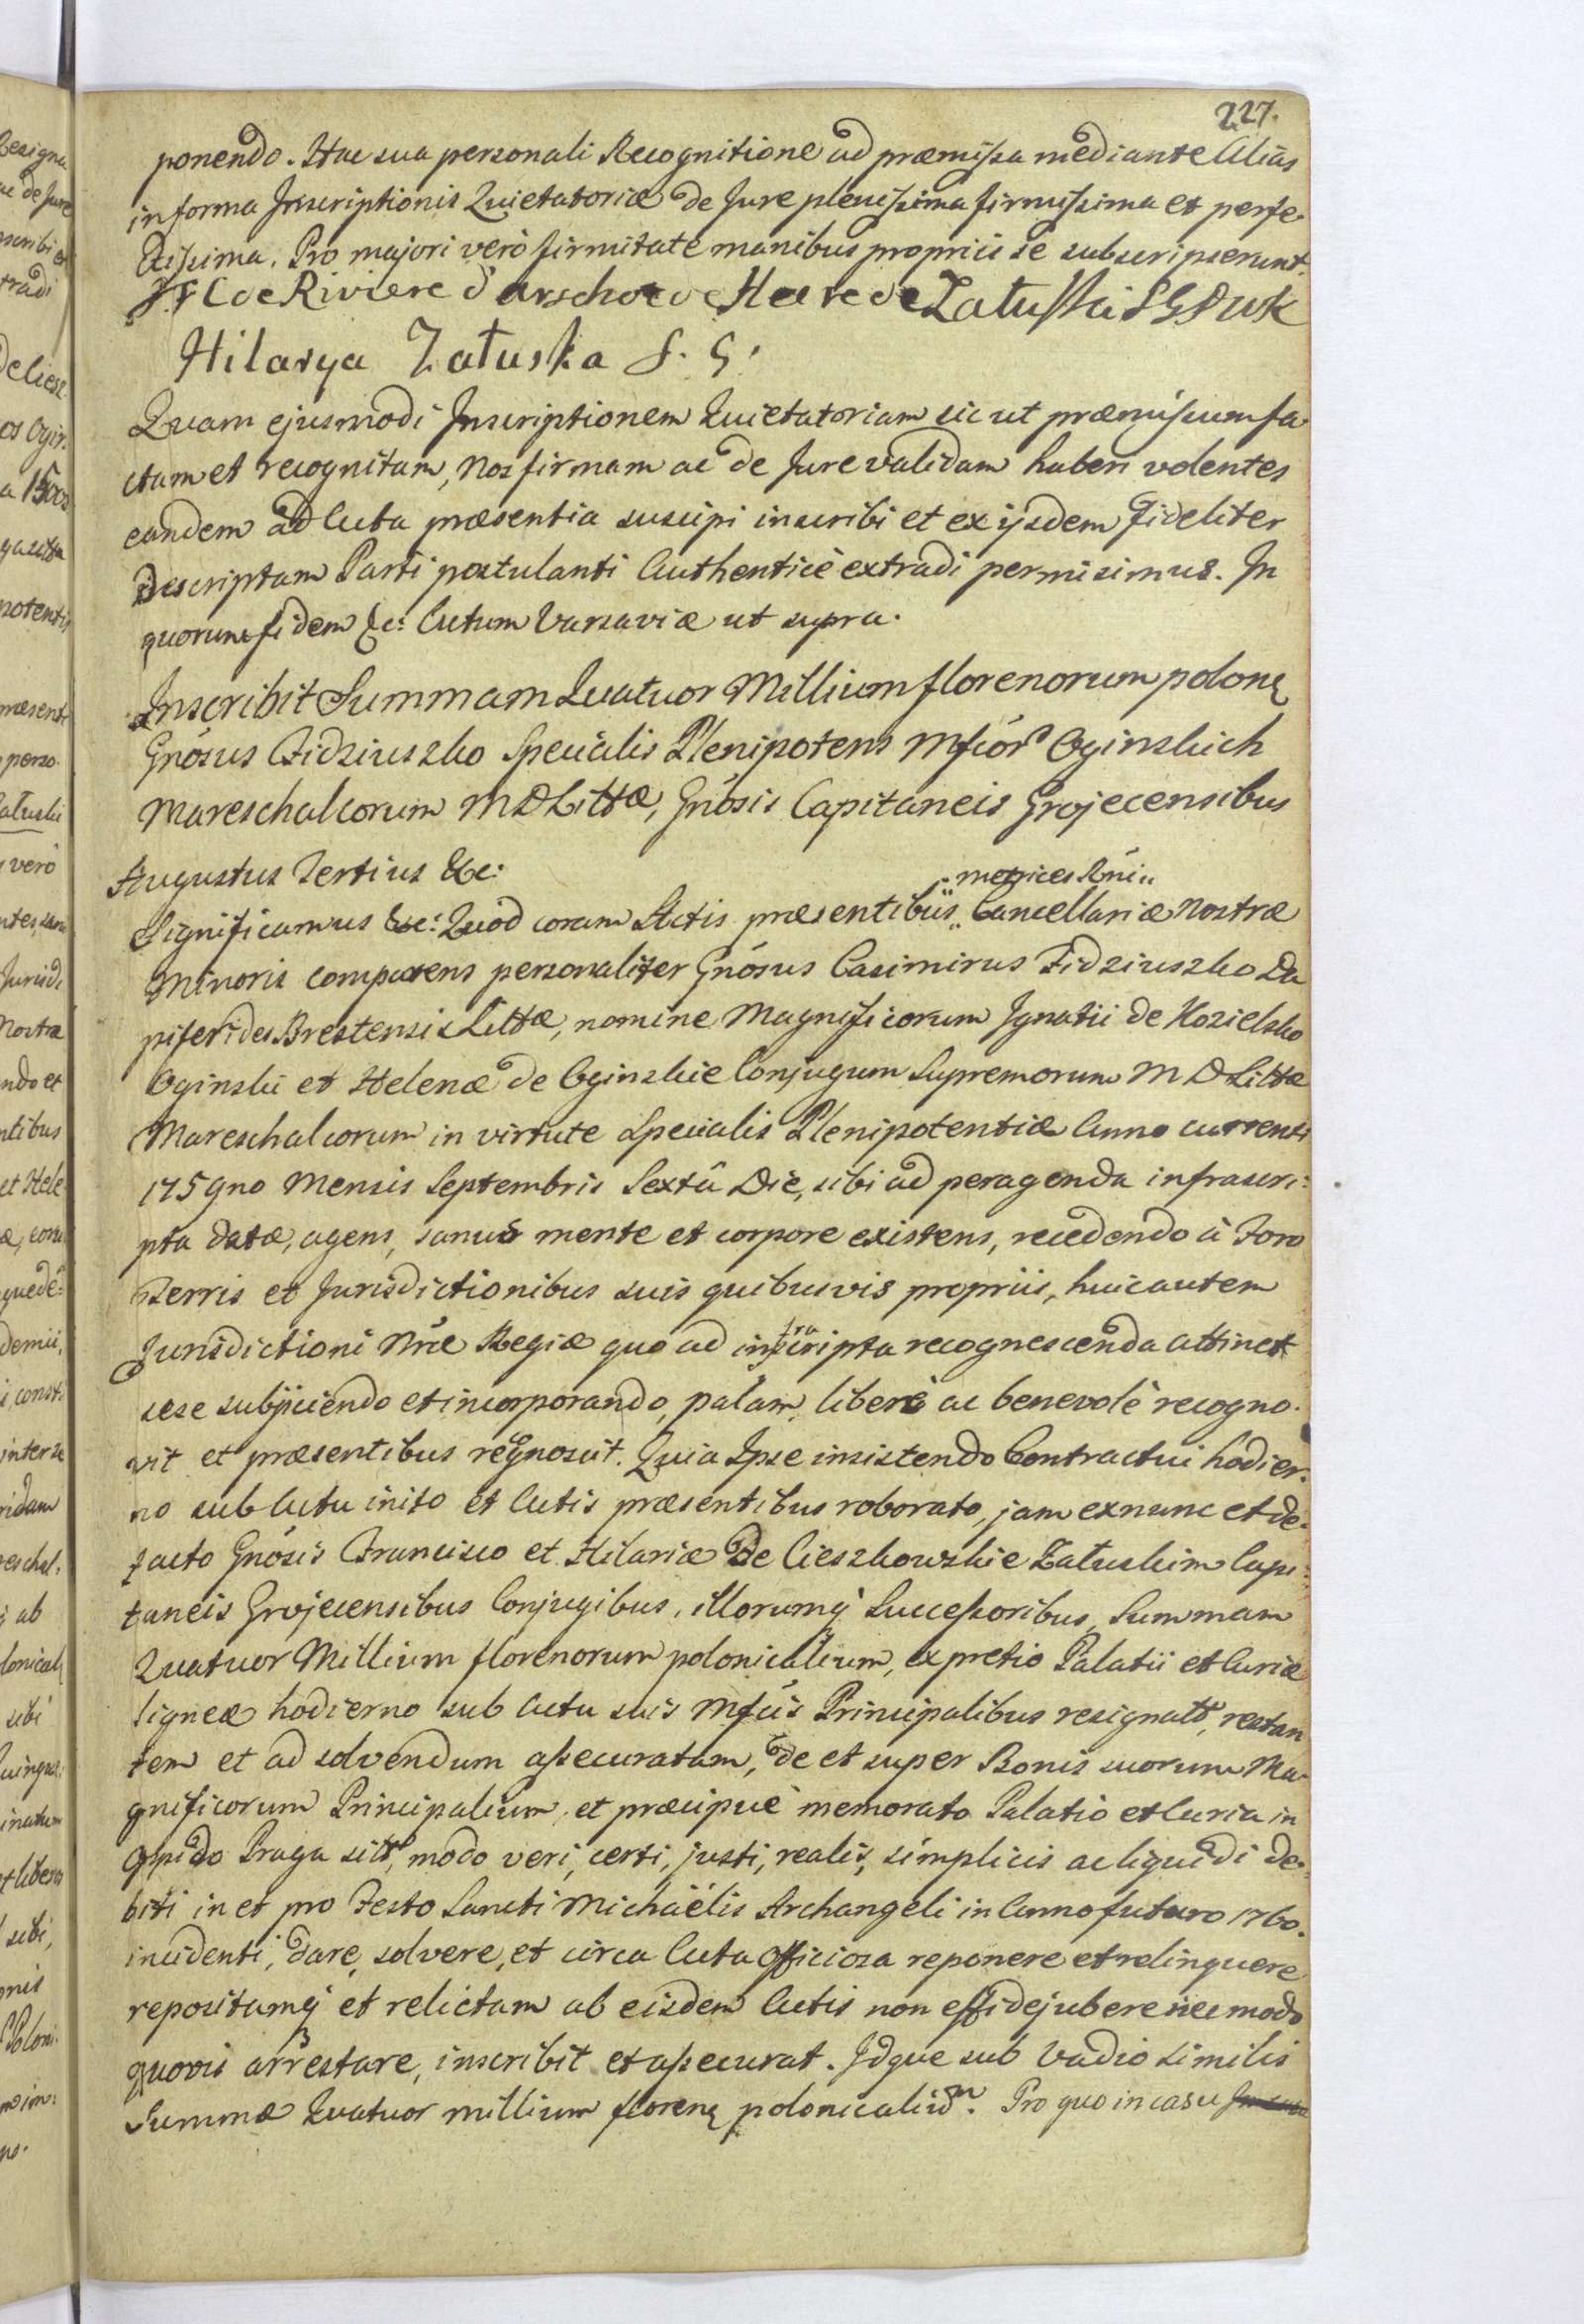 227.
ponendo. Hac sua personali Recognitione ad præmissa mediante Alias
in forma Inscriptionis Quietatoriæ de Jure plenissima firmissima et perfe-
ctissima. Pro majori verò firmitate manibus propriis se subscripserunt.
de Riviere d'arschot de Heere de Załuski SGPWK
Hilarya Załuska S. G.
Quam ejusmodi Inscriptionem Quietatoriam sic ut præmissum fa-
ctam et recognitam, Nos firmam ac de Jure validam haberi volentes
eandem ad Acta præsentia suscipi inscribi et ex ijsdem fideliter
descriptam Parti postulanti Authenticè extradi permisimus. In
quorum fidem &c: Actum Varsaviæ ut supra.
Inscribit Summam Quatuor Millium florenorum polonq
Gnósus Fidziuszko Specialis Plenipotens Mficór Oginskich
Mareschalcorum MDLittæ, Gnósis Capitaneis Grojecensibus
Augustus Tertius &c:
metrices Rni
Significamus &c: Quod coram Actis præsentibus Cancellariæ Nostræ
Minoris comparens personaliter Gnósus Casimirus Fidziuszko Da
piferides Brestensis Littæ, nomine Magnificorum Ignatii de Kozielsko
Oginski et Helenæ de Oginskie Conjugum Supremorum M D Littæ
Mareschalcorum in virtute Specialis Plenipotentiæ Anno currenti
1759no Mensis Septembris Sextâ Die, sibi ad peragenda infrascri:
pta datæ, agens, sanus mente et corpore existens, recedendo à Foro
Terris et Jurisdictionibus suis quibusvis propriis, huic autem
Jurisdictioni Nræ Regiæ quo ad infrascripta recognescenda attinet
sese subjiciendo et incorporando, palam, liberè ac benevolè recogno-
vit et præsentibus recgnoscit. Quia Ipse insistendo Contractui hodier-
no sub Actu inito et Actis præsentibus roborato, jam exnunc et de-
facto Gnósis Francisco et Hilariæ De Cieszkowskie Załuskim Capi:
taneis Grojecensibus Conjugibus, illorumq Successoribus, Summam
Quatuor Millium florenorum polonicalium, ex pretio Palatii et Curiæ
ligneæ hodierno sub Actu suis Mfcis Principalibus resignatt, restan
tem et ad solvendum assecuratam, de et super Bonis suorum Ma-
gnificorum Principalium, et præcipuè memorato Palatio et Curia in
Oppido Praga sitt, modo veri, certi, justi, realis, simplicis ac liquidi de-
biti in et pro Festo Sancti Michaëlis Archangeli in Anno futuro 1760.
incidenti, dare, solvere, et circa Acta Officiosa reponere et relinquere
repositamq et relictam ab eisdem Actis non effidejubere nec modo
quovis arrestare, inscribit et assecurat. Idque sub Vadio similis
Summæ Quatuor millium florenq polonicalium. Pro quo in casu